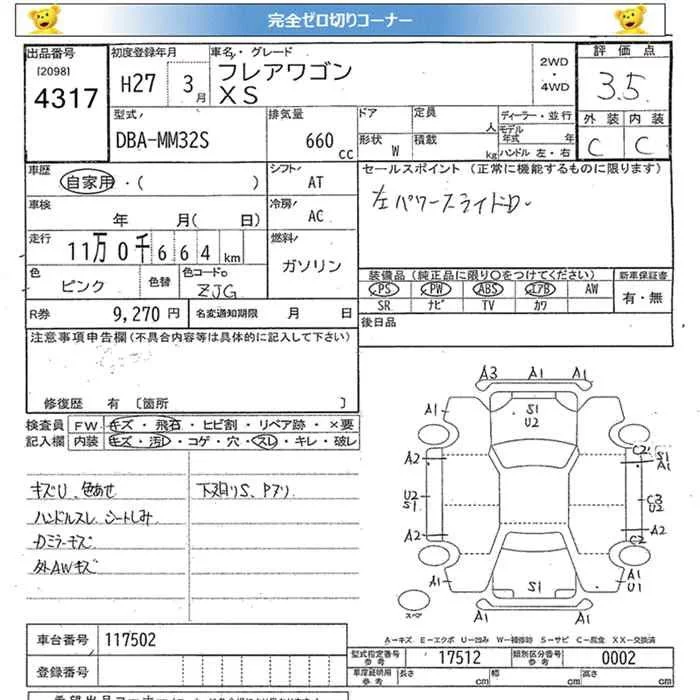 完全ゼロ切りコーナー
出品番号 初度登録年月 車名・グレード 評価点
[2098] H27 3月 フレアワゴン 2WD・4WD 3.5
4317 XS 外装 内装
型式 排気量 ドア 定員 人 ディーラー・並行 C C
DBA-MM32S 660cc 形状 W 積載 kg モデル年式 年 ハンドル 左・右
車歴 シフト セールスポイント (正常に機能するものに限ります)
自家用・( ) AT 左パワースライドD
車検 冷房
年 月( 日) AC
走行 11万0千664km 燃料
ガソリン
色 色替 色コードNo 装備品(純正品に限り○をつけてください) 新車保証書
ピンク ZJG PS PW ABS エアB AW 有・無
SR ナビ TV カワ
R券 9,270円 名変通知期限 月 日 後日品
注意事項申告欄(不具合内容等は具体的に記入して下さい)
修復歴 有 〔箇所 〕
検査員 FW キズ・飛石・ヒビ割・リペア跡・×要
記入欄 内装 キズ・汚レ・コゲ・穴・スレ・キレ・破レ
キズU、色あせ 下廻りS、Pアリ
ハンドルスレ シートしみ
Dミラーキズ
外AWキズ
A3 A1 A1
A1 S1 A1
U2
A2 C2 S1
A1
A2
U2 C3
S1 U2
A2 A2
C2
A1 S1 A1
U1
A1 A1
スペア
A－キズ E－エクボ U－凹み W－補修跡 S－サビ C－腐食 XX－交換済
車台番号 117502
型式指定番号 参考 17512 類別区分番号 参考 0002
登録番号 車庫証明 参考 長さ cm 幅 cm 高さ cm